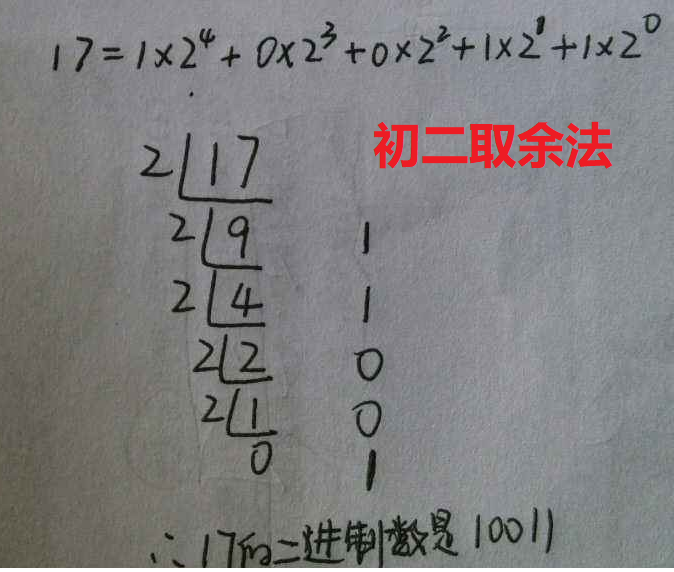 17=1×2⁴+0×2³+0×2²+1×2¹+1×2⁰
初二取余法
2 17
2 9 1
2 4 1
2 2 0
2 1 0
0 1
∴17的二进制数是10011